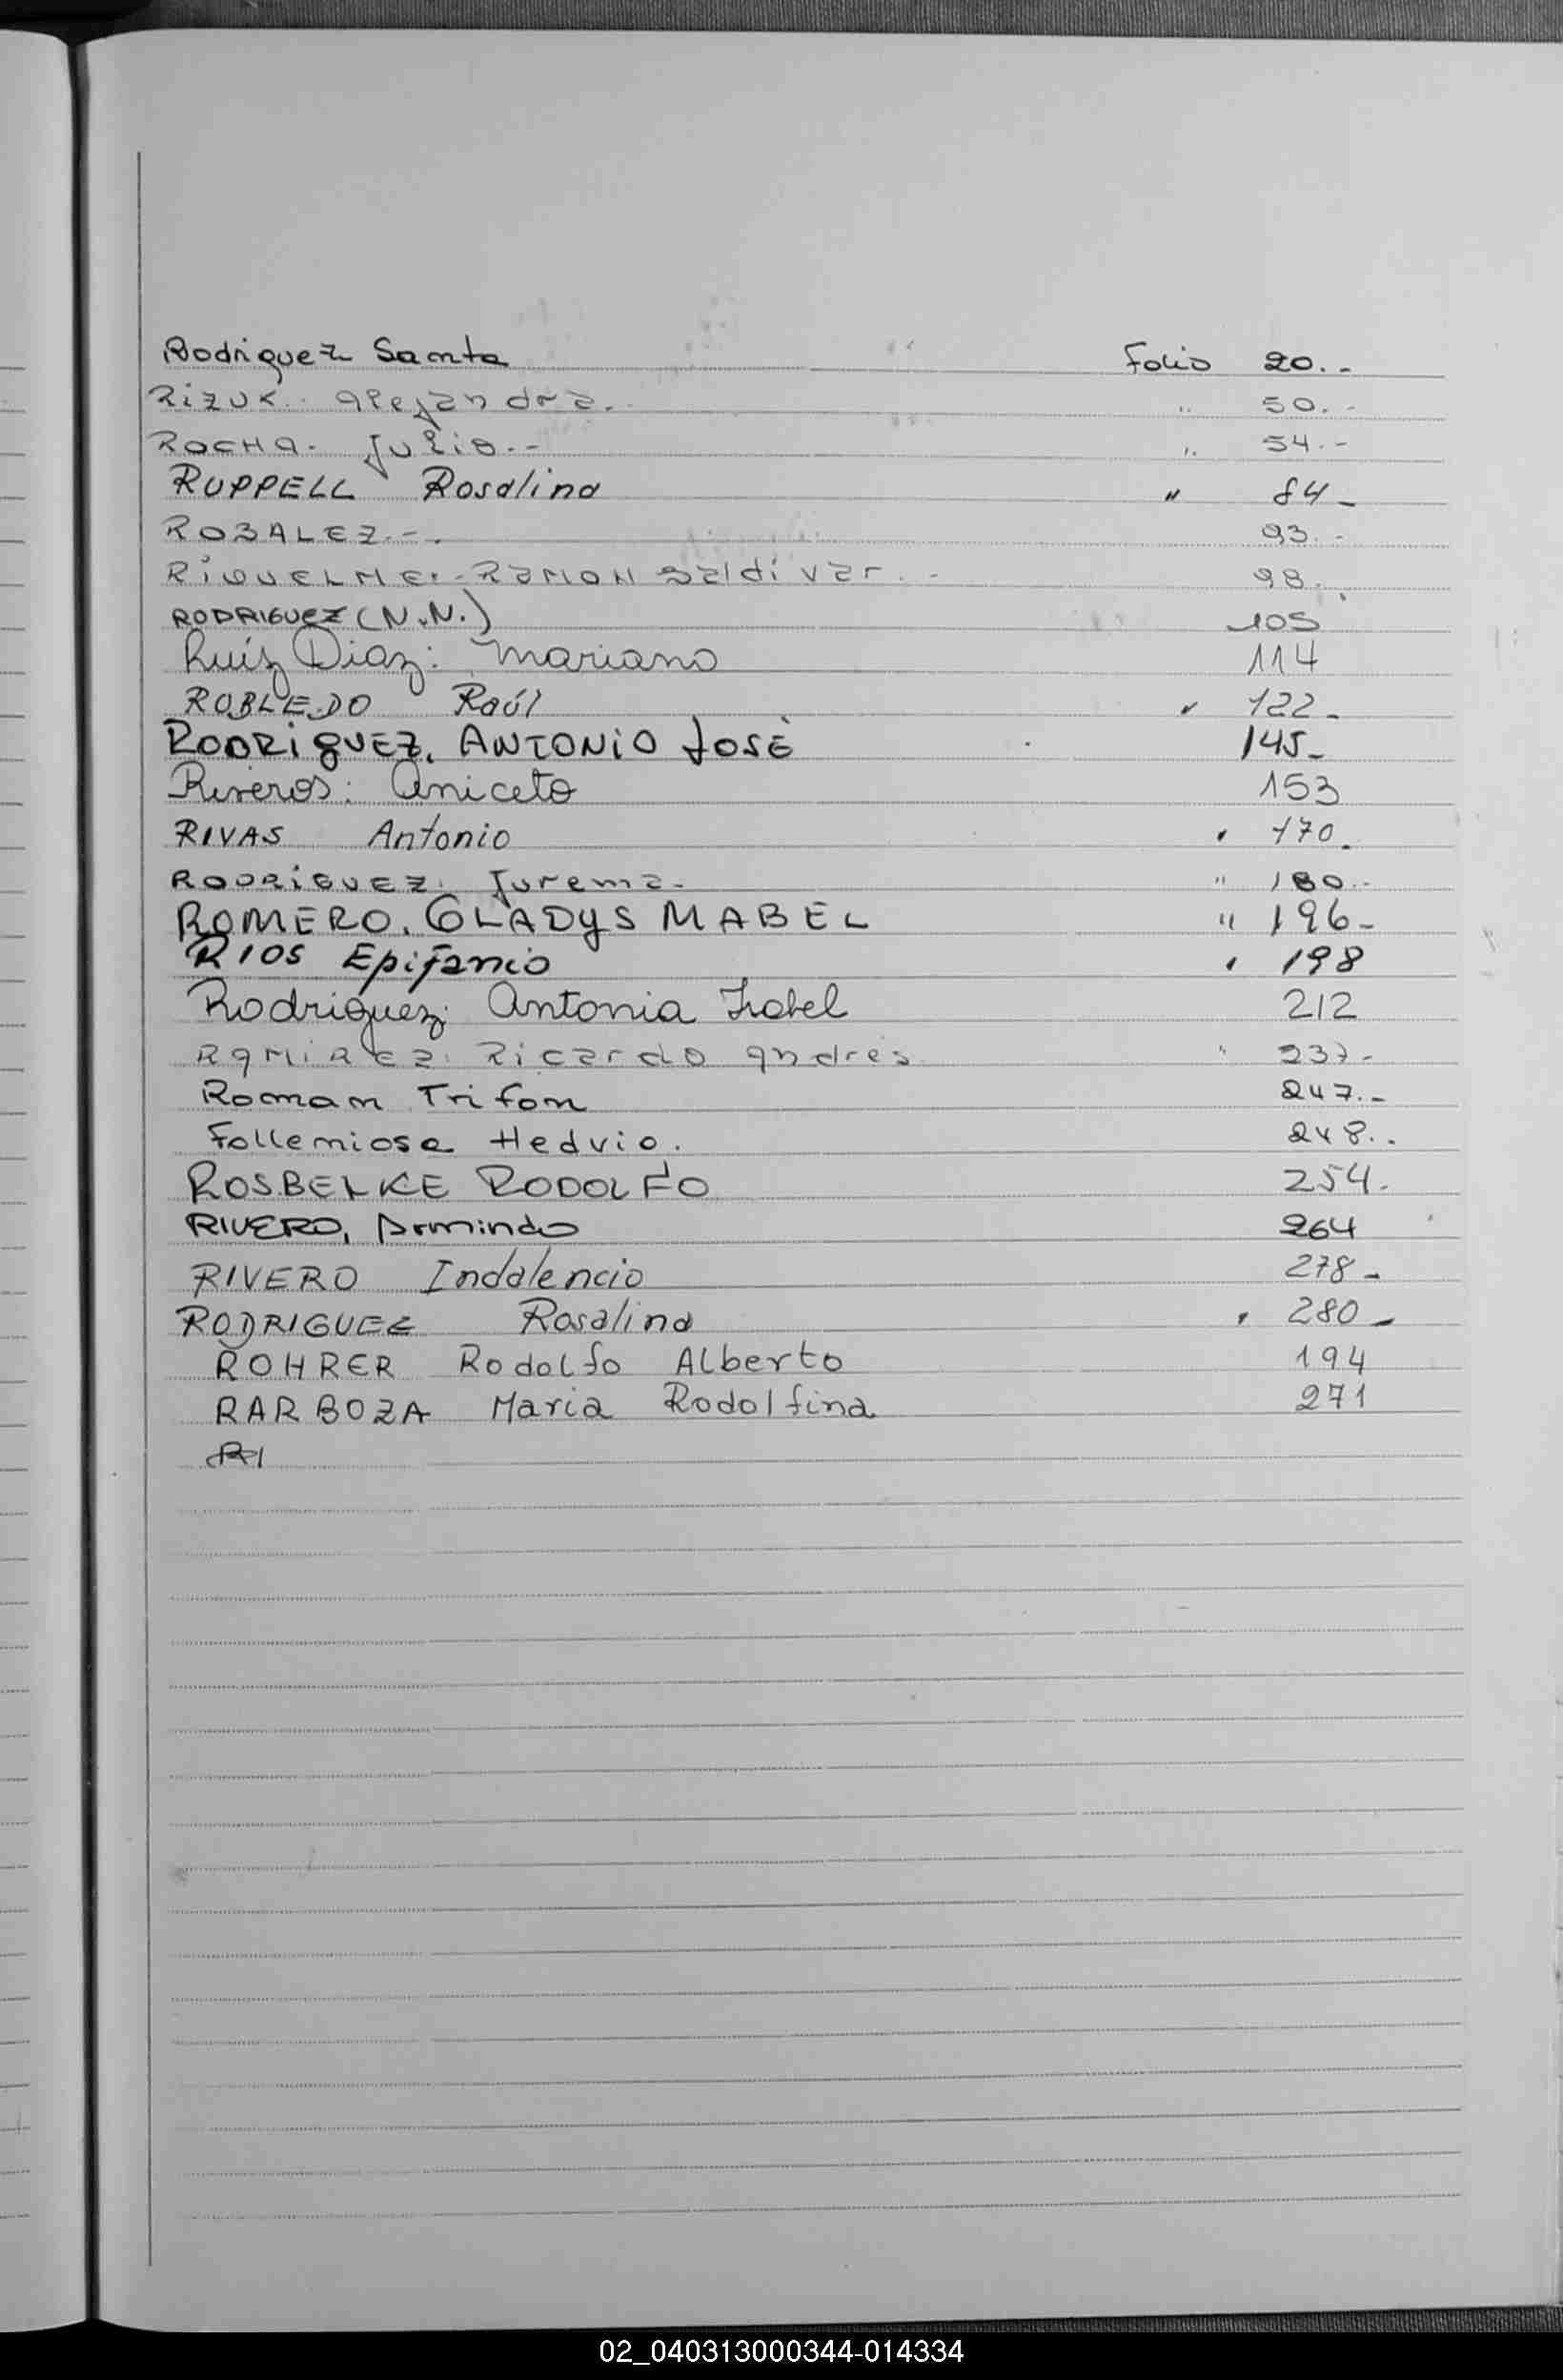 Rodriguez Santa Folio 20.-
Rizuk. Alejandra. " 50.-
ROCHA. Julio.- " 54.-
RUPPELL Rosalina " 84-
ROBALEZ.-. 93.-
RiQUELME.-RAMON Saldivar.- 98.
RODRIGUEZ (N.N.) 105
Ruíz Diaz: Mariano 114
ROBLEDO Raúl " 122-
RODRiguEZ, ANTONiO JOSÉ 145-
Riveros: Aniceto 153
RIVAS Antonio " 170.
RODRiGUEZ. Jurema.- " 180.-
ROMERO. GLADYS MABEL " 196-
RIOS Epifanio " 198
Rodriguez: Antonia Isabel 212
RAMiREZ. Ricardo Andres " 237-
Roman Trifon 247.-
Follemiosa Hedvio. 248..
ROSBELKE RODOLFO 254.
RIVERO, Armindo 264
RIVERO Indalencio 278-
RODRIGUEZ Rosalina " 280-
ROHRER Rodolfo Alberto 194
RARBOZA Maria Rodolfina 271
02_040313000344-014334